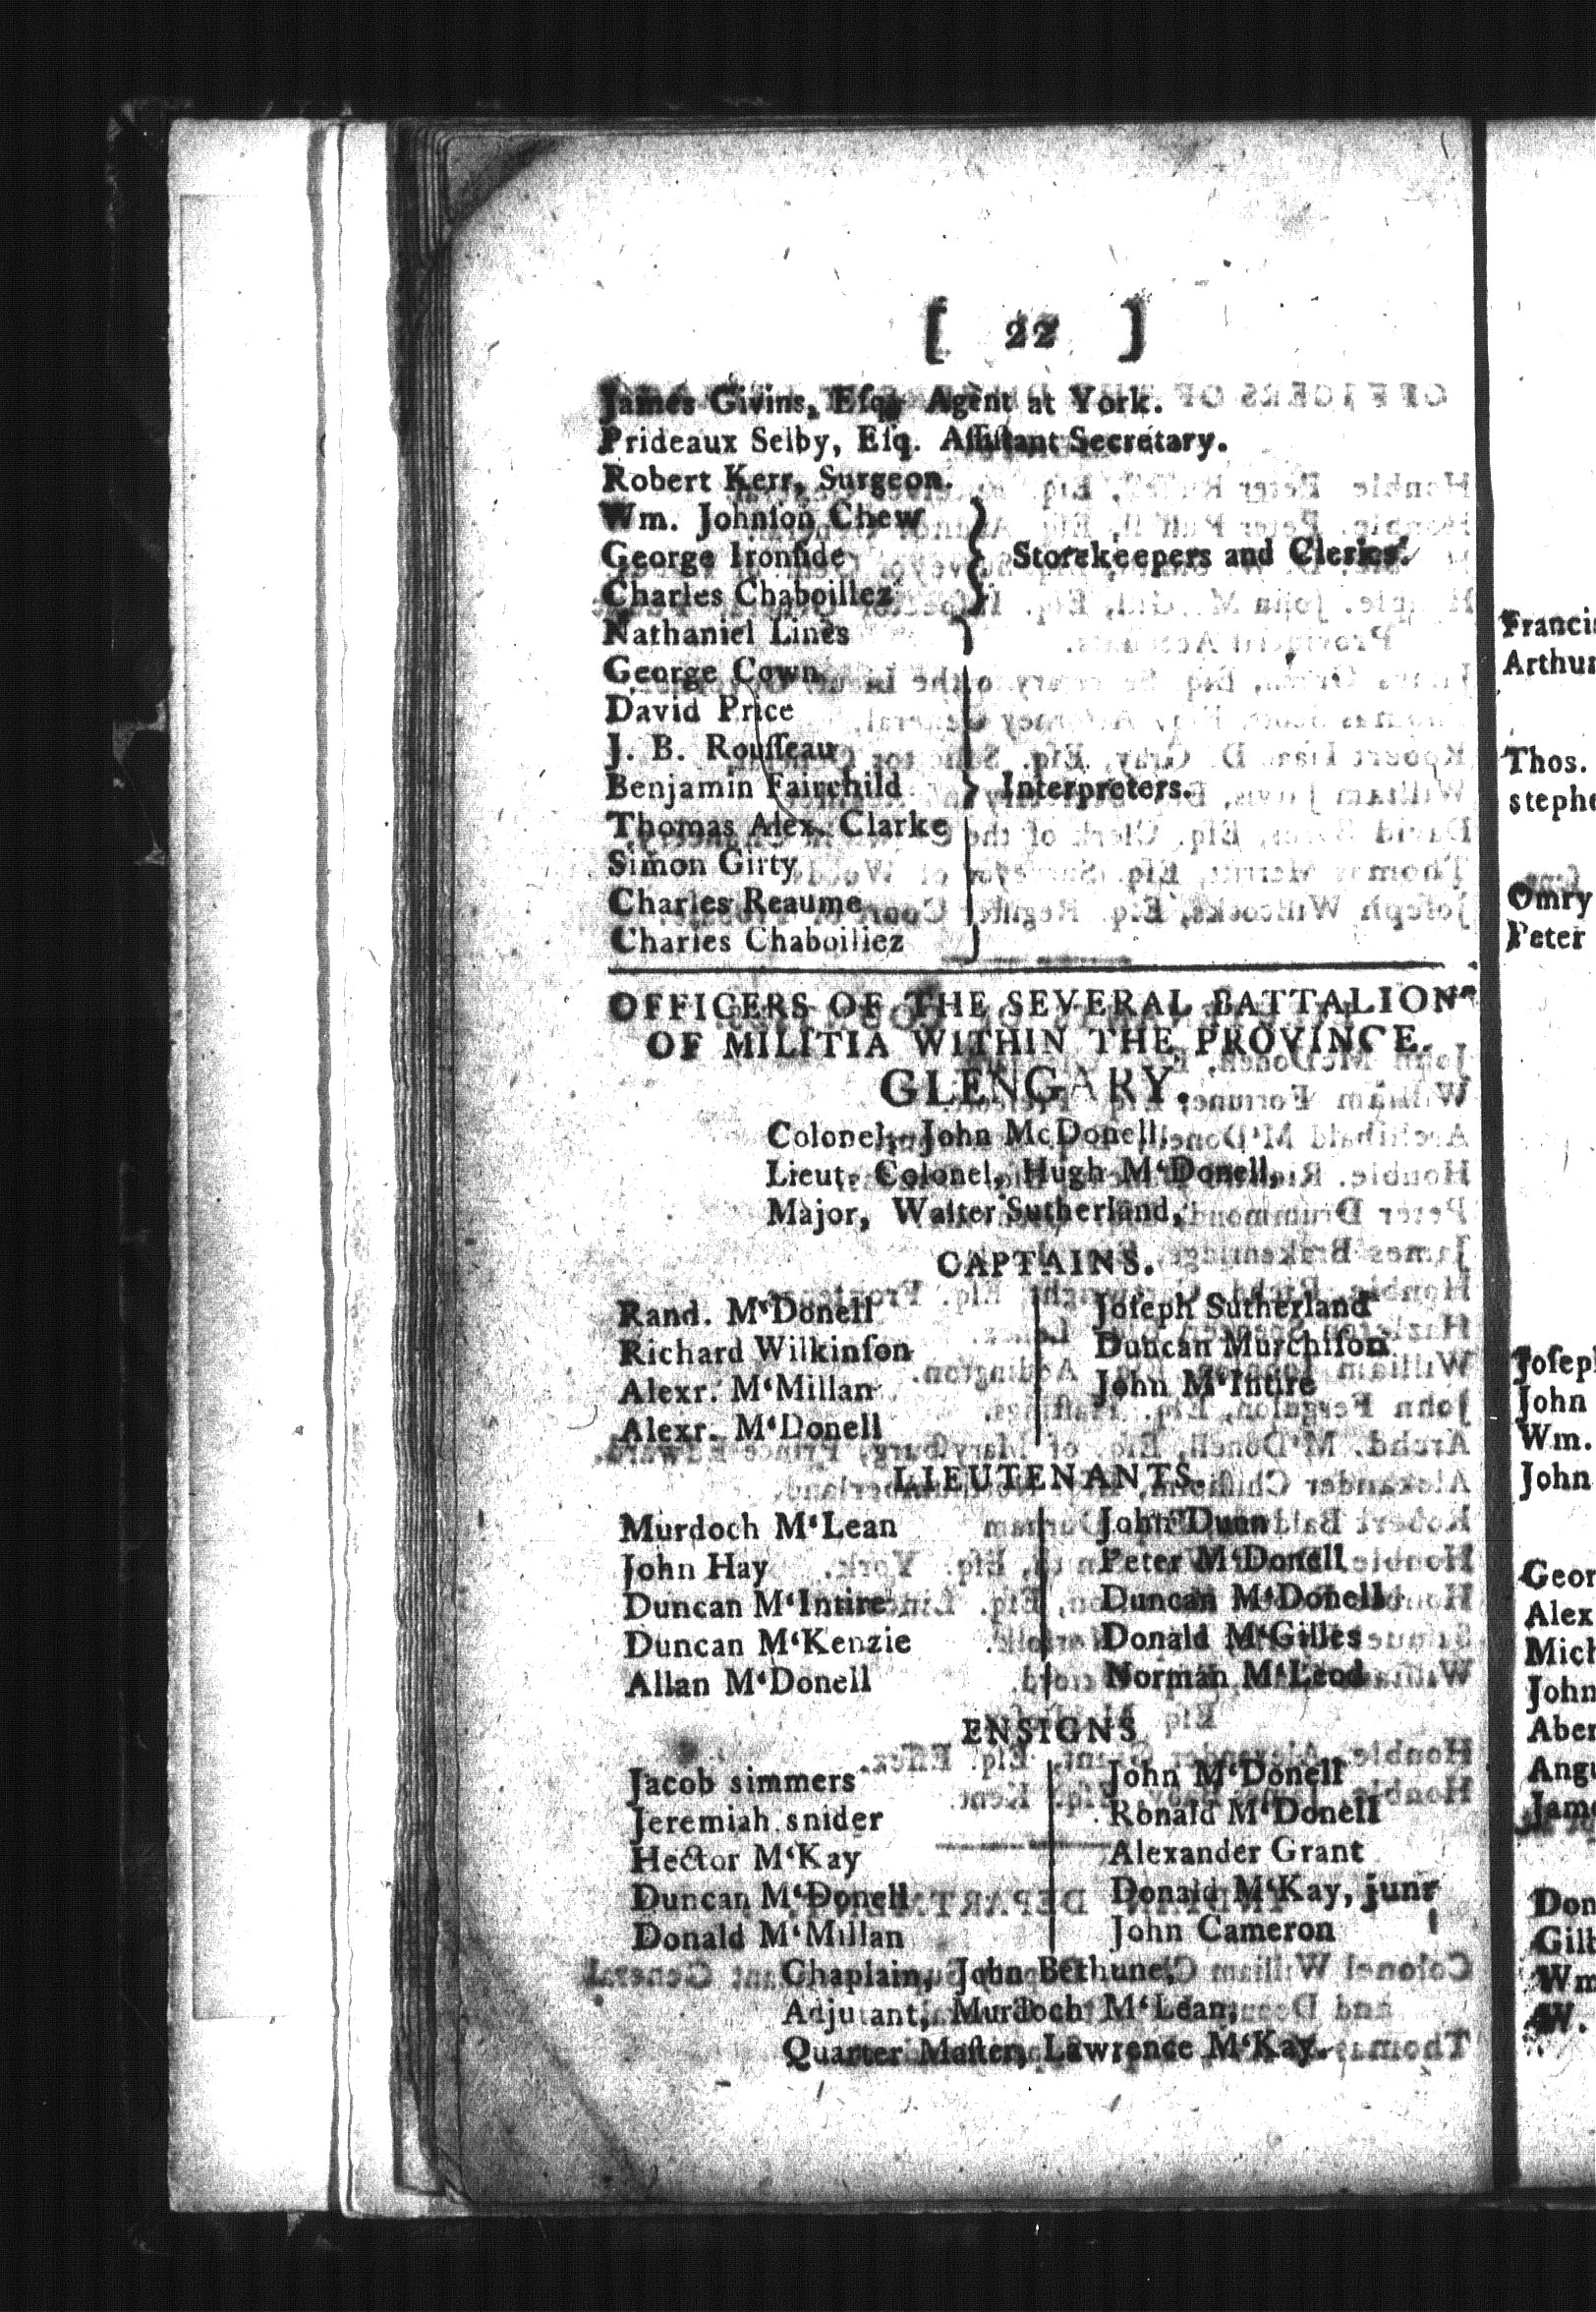 [ 22 ]
James Givins, Eſq. Agent at York.
Prideaux Selby, Eſq. Aſſiſtant Secretary.
Robert Kerr, Surgeon.
Wm. Johnſon Chew
George Ironſide
Charles Chaboillez
} Storekeepers and Clerks.
Nathaniel Lines
George Cown
David Price
J. B. Rouſſeau
Benjamin Fairchild
Thomas Alex. Clarke
Simon Girty
Charles Reaume
Charles Chaboillez
} Interpreters.
OFFICERS OF THE SEVERAL BATTALIONS
OF MILITIA WITHIN THE PROVINCE.
GLENGARY.
Colonel, John McDonell,
Lieut. Colonel, Hugh M‘Donell,
Major, Walter Sutherland,
CAPTAINS.
Rand. M‘Donell
Richard Wilkinſon
Alexr. M‘Millan
Alexr. M‘Donell
Joſeph Sutherland
Duncan Murchiſon
John M‘Intire
LIEUTENANTS.
Murdoch M‘Lean
John Hay
Duncan M‘Intire
Duncan M‘Kenzie
Allan M‘Donell
John Dunn
Peter M‘Donell
Duncan M‘Donell
Donald M‘Gilles
Norman M‘Leod
ENSIGNS
Jacob simmers
Jeremiah snider
Hector M‘Kay
Duncan M‘Donell
Donald M‘Millan
John M‘Donell
Ronald M‘Donell
Alexander Grant
Donald M‘Kay, junr
John Cameron
Chaplain, John Bethune,
Adjutant, Murdoch M‘Lean,
Quarter Maſter, Lawrence M‘Kay.
Arthur
Thos.
Omry
Peter
John
Wm.
John
Alex
John